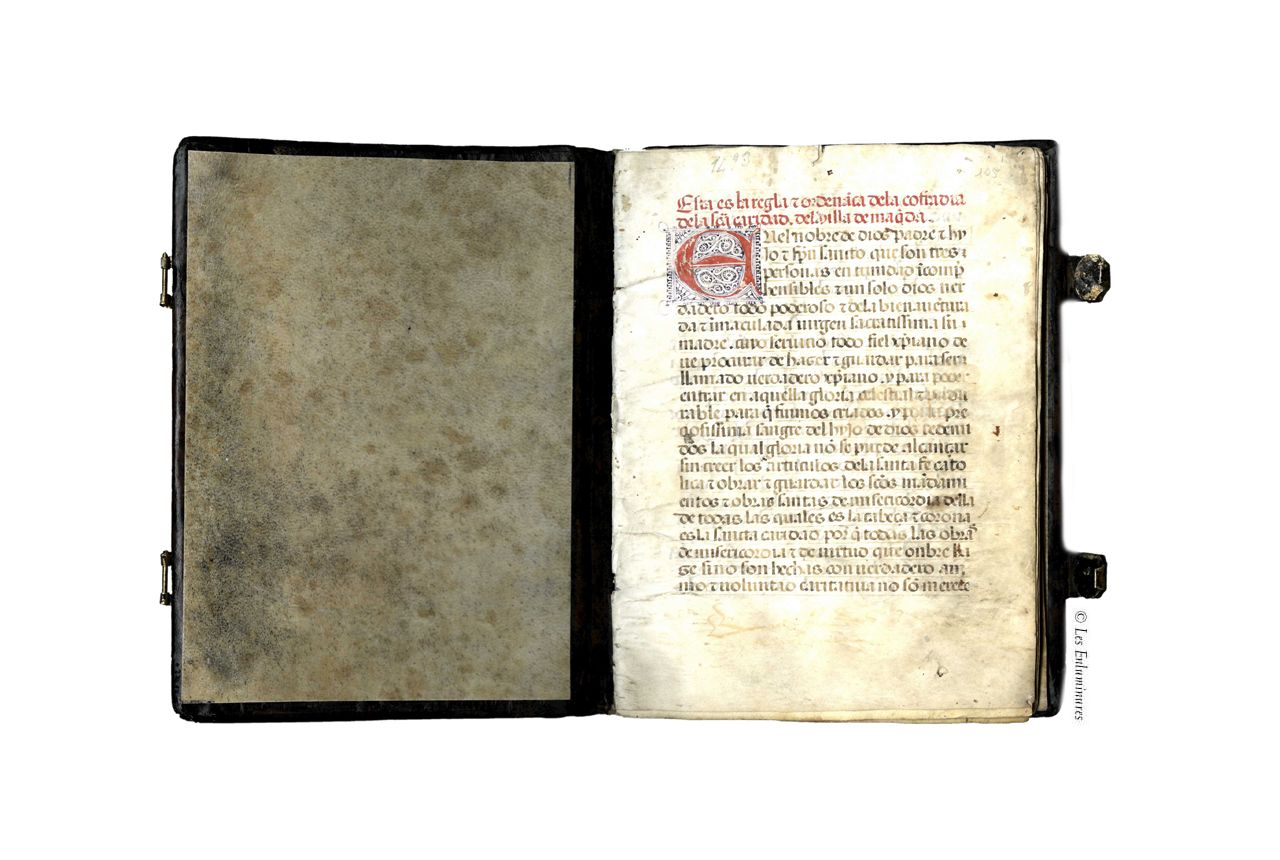 1493
105
Esta es la regla ⁊ ordenāca dela cofradia
de la scā caridad. del villa de maq̄da.
En el nōbre de dios padre ⁊ hy
jo ⁊ spū santo que son tres
personas en trinidad īcomp̄
hensibles ⁊ un solo dios ver
dadero todo poderoso ⁊ de la bien auētura
da ⁊ īmaculada virgen sacratissima sū
madre. cuyo seruicio todo fiel xp̄iano de
ue procurar de hazer ⁊ guardar para ser
llamado uerdadero xp̄iano. y para poder
entrar en aquella gloria celestial ⁊ perdu
rable para q̄ fuimos criados. y por la pre
çiosissima sangre del hyjo de dios redemi
dos la qual gloria nō se puede alcançar
sin creer los articulos de la santa fe cato
lica ⁊ obrar ⁊ guardar los scōs mādami
entos ⁊ obras santas de misericordia della
de todas las quales es la cabeça ⁊ corona
es la sancta caridad por q̄ todas las obras
de misericordia ⁊ de uirtud que onbre
ge si no son hechas con uerdadero ani
mo ⁊ uoluntad caritatiua no sō merece
© Les Enluminures